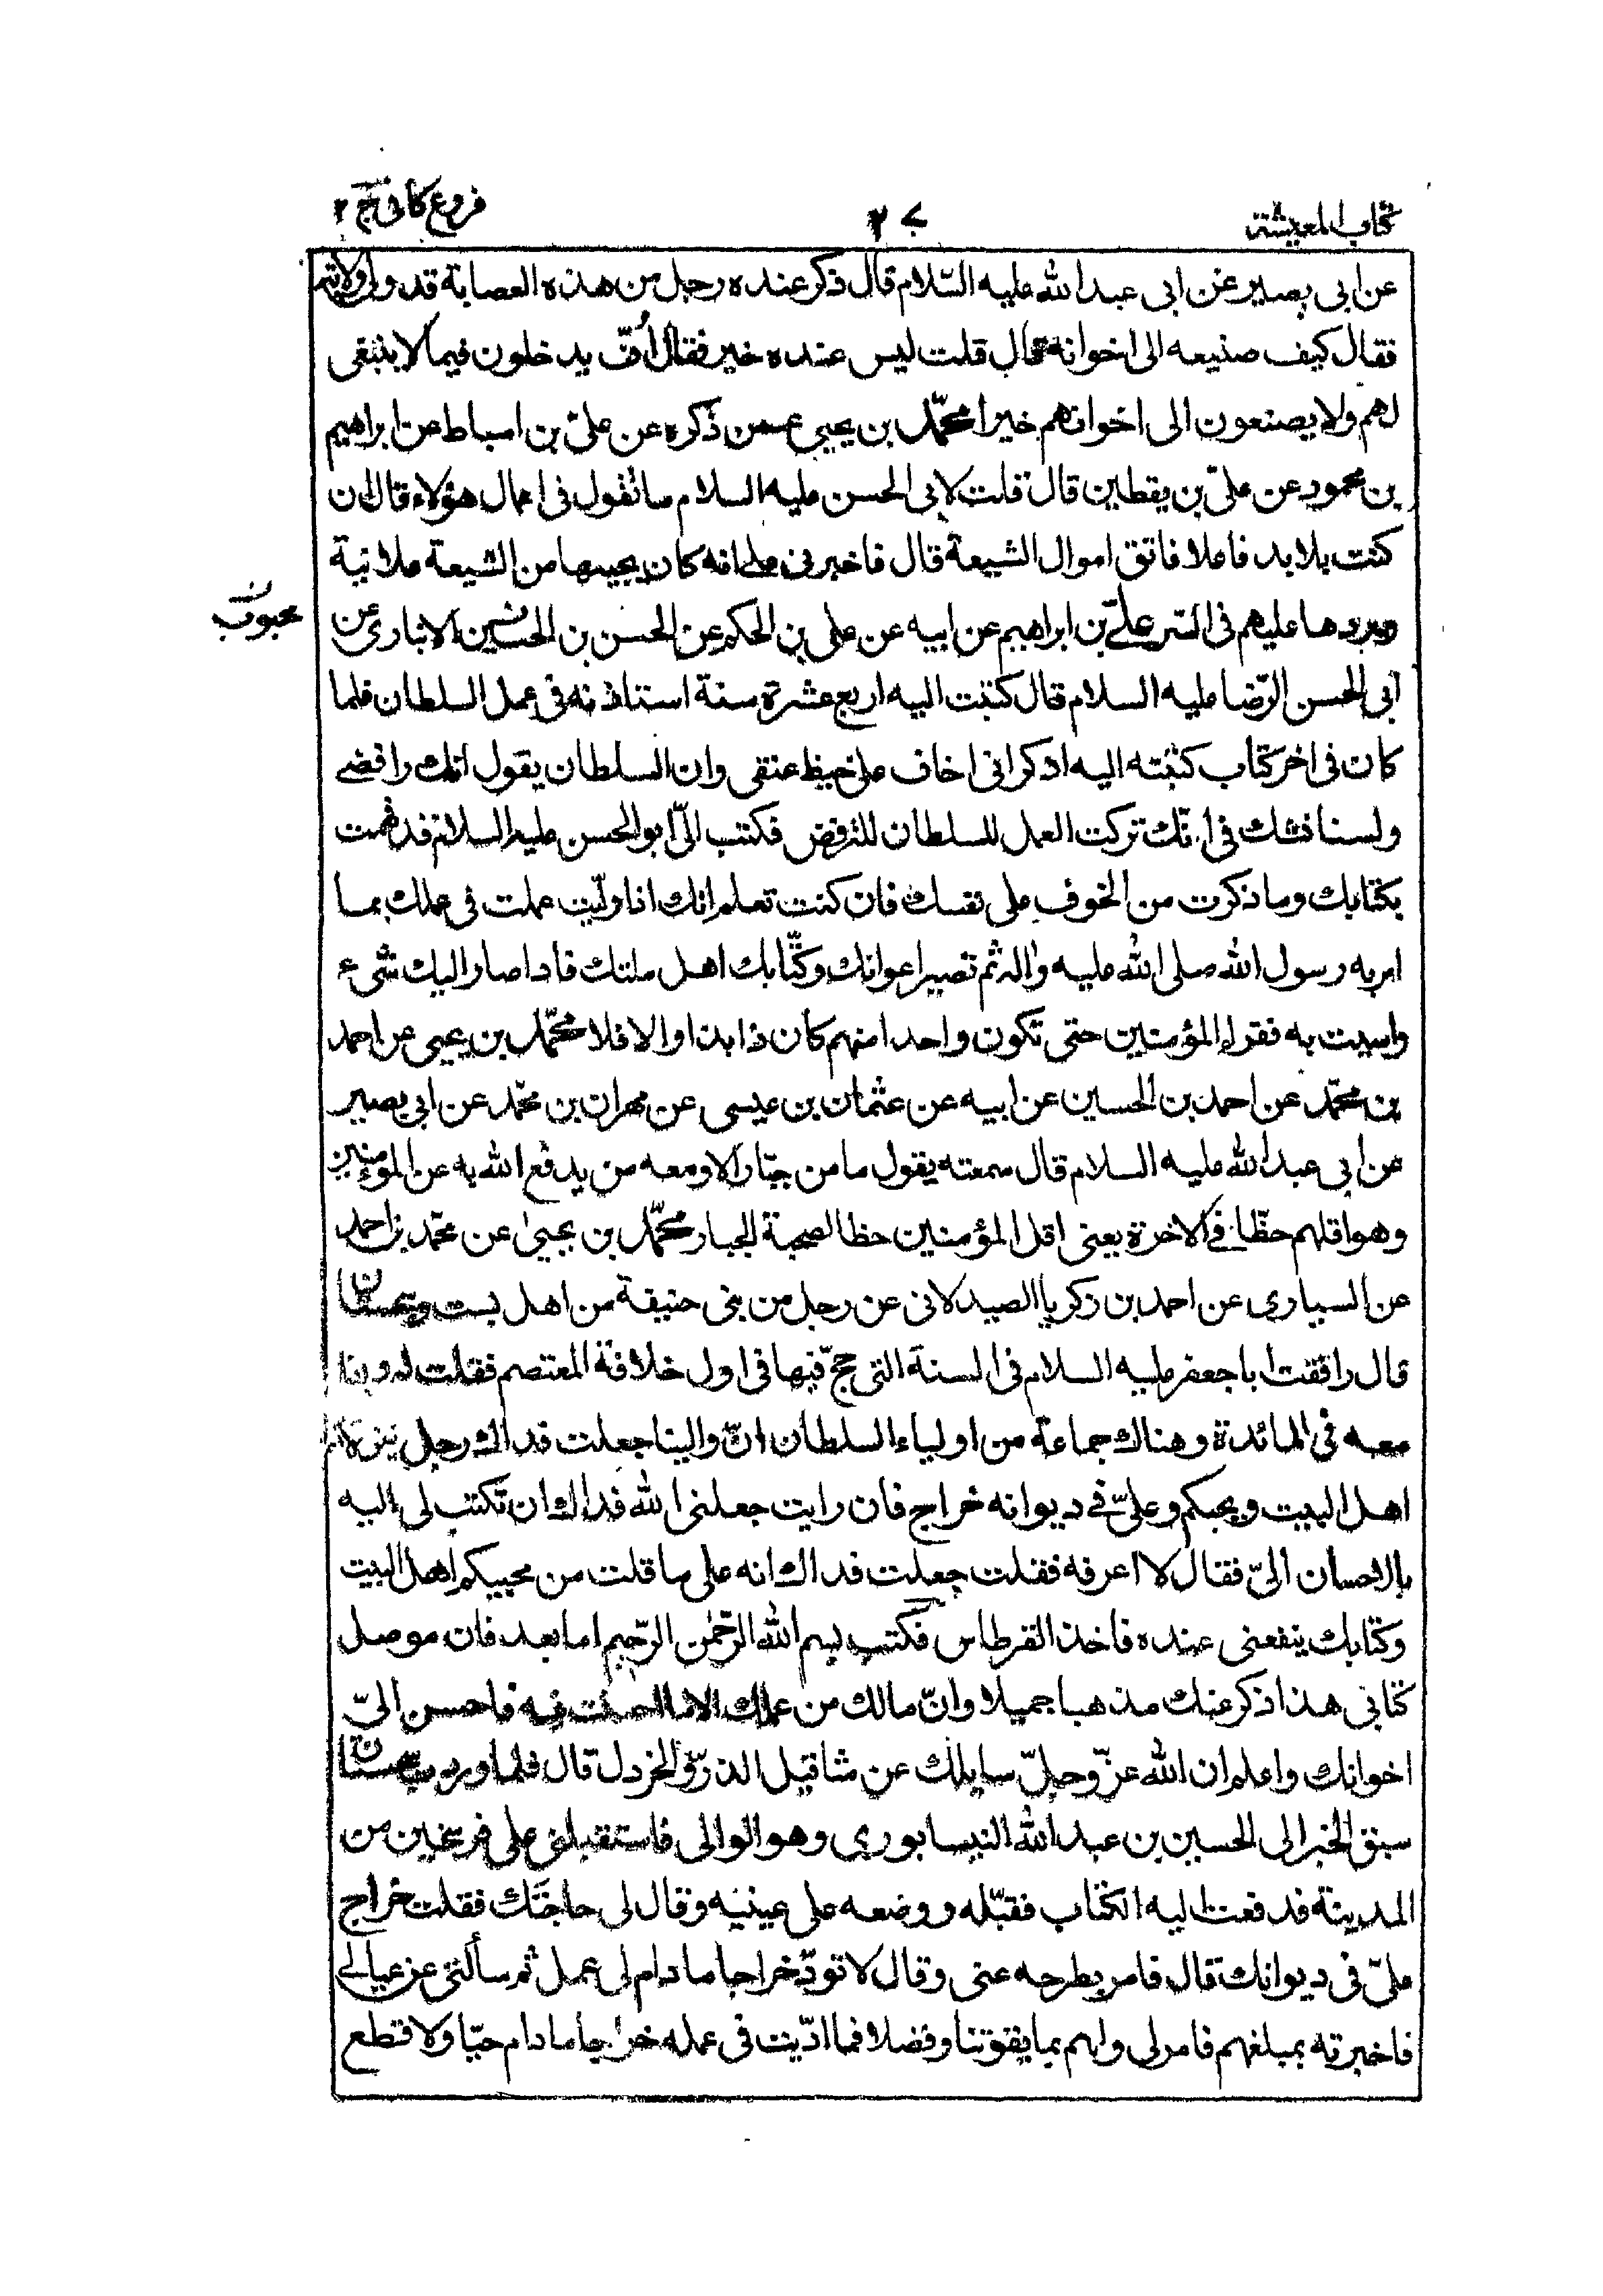 كتاب المعيشة
٢٧
فروع كافي ج ٢
عن ابى بصير عن ابى عبد الله عليه السّلام قال ذكر عنده رجل من هذه العصابة قد ولى ولاية
فقال كيف صنيعه الى اخوانه قال قلت ليس عنده خير فقال اُفّ يدخلون فيما لا ينبغى
لهم ولا يصنعون الى اخوانهم خيرا محمّد بن يحيى عمن ذكره عن علىّ بن اسباط عن ابراهيم
بن محمود عن علىّ بن يقطين قال قلت لابى الحسن عليه السلام ما تقول فى اعمال هؤلاء قال ان
كنت بلا بد فاعلا فاتق اموال الشيعة قال فاخبرنى على انه كان يجيبها من الشيعة علانية
ويردها عليهم فى السّر علىّ بن ابراهيم عن ابيه عن على بن الحكم عن الحسن بن الحسين الانبارى عن
محبوب ن
ابى الحسن الرّضا عليه السلام قال كتبت اليه اربع عشرة سنة استاذنه فى عمل السلطان فلما
كان فى اخر كتاب كتبته اليه اذكر انى اخاف على خيط عنقى وان السلطان يقول انك رافضى
ولسنا نشك فى انّك تركت العمل للسلطان للترفض فكتب الىّ ابو الحسن عليه السلام قد فهمت
بكتابك وما ذكرت من الخوف على نفسك فان كنت تعلم انك اذا ولّيت عملت فى عملك بما
امر به رسول الله صلى الله عليه واله ثم تصير اعوانك وكتّابك اهل ملتك فاذا صار اليك شىء
واسيت به فقراء المؤمنين حتى تكون واحدا منهم كان ذا بذا والا فلا محمّد بن يحيى عن احمد
بن محمّد عن احمد بن الحسين عن ابيه عن عثمان بن عيسى عن مهران بن محمّد عن ابى بصير
عن ابى عبد الله عليه السلام قال سمعته يقول ما من جبّار الا ومعه من يدفع الله به عن المؤمنين
وهو اقلهم حظّا فى الاخرة يعنى اقل المؤمنين حظا لصحبة الجبار محمّد بن يحيىٰ عن محمّد بن احمد
عن السيارى عن احمد بن زكريا الصيدلانى عن رجل من بنى حنيفة من اهل بست وسجستان
قال رافقت ابا جعفر عليه السلام فى السنة التى حجّ فيها فى اول خلافة المعتصم فقلت له وانا
معه فى المائدة وهناك جماعة من اولياء السلطان انّ والينا جعلت فداك رجل يتولاكم
اهل البيت ويحبكم وعلىّ فى ديوانه خراج فان رايت جعلنى الله فداك ان تكتب لى اليه
بالاحسان الىّ فقال لا اعرفه فقلت جعلت فداك انه على ما قلت من محبيكم اهل البيت
وكتابك ينفعنى عنده فاخذ القرطاس فكتب بسم الله الرّحمٰن الرّحيم اما بعد فان موصل
كتابى هذا ذكر عنك مذهبا جميلا وانّ مالك من عملك الا ما احسنت فيه فاحسن الىّ
اخوانك واعلم ان الله عزّ وجلّ سايلك عن مثاقيل الذرّ والخردل قال فلما وردت سجستان
سبق الخبر الى الحسين بن عبد الله النيسابورى وهو الوالى فاستقبلنى على فرسخين من
المدينة فدفعت اليه الكتاب فقبّله ووضعه على عينيه وقال لى حاجتك فقلت خراج
علىّ فى ديوانك قال فامر بطرحه عنى وقال لا تودّ خراجا ما دام لى عمل ثم سألنى عن عيالى
فاخبرته بمبلغهم فامر لى ولهم بما يقوتنا وفضلا فما ادّيت فى عمله خراجا ما دام حيّا ولا قطع